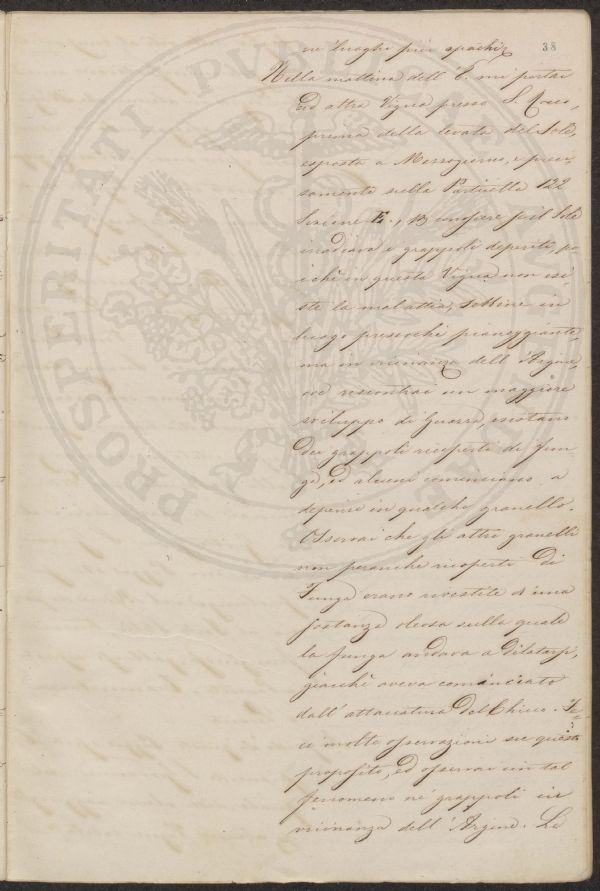 38
ne' luoghi più
Nella mattina dell' 8. mi portai
Ad altra Vigna presso S. Rocco,
prima della levata del Sole,
esposta a Mezzogiorno, e preci-
samente nella Particella 122
Sezione E.,
irradiava i grappoli deperiti, po-
iché in questa Vigna non esi-
ste la malattia, sebbene in
luogo pressoché pianeggiante,
ma in vicinanza dell' Argine,
ove riscontrai un maggiore
sviluppo di esistano
dei grappoli ricoperti di fun-
go, ed alcuni cominciano a
deperire in qualche granello.
Osservai che gli altri granelli
non peranche ricoperti di
Funga erano rivestite d'una
sostanza oleosa sulla quale
la funga andava a dilatarsi,
giacché aveva cominciato
dall' attaccatura del Chicco. Fe-
ci molte osservazioni su questo
proposito, ed osservai un tal
fenomeno ne' grappoli in
vicinanza dell' Argine. Le
PROSPERITATI PUBLICAE AUGENDAE